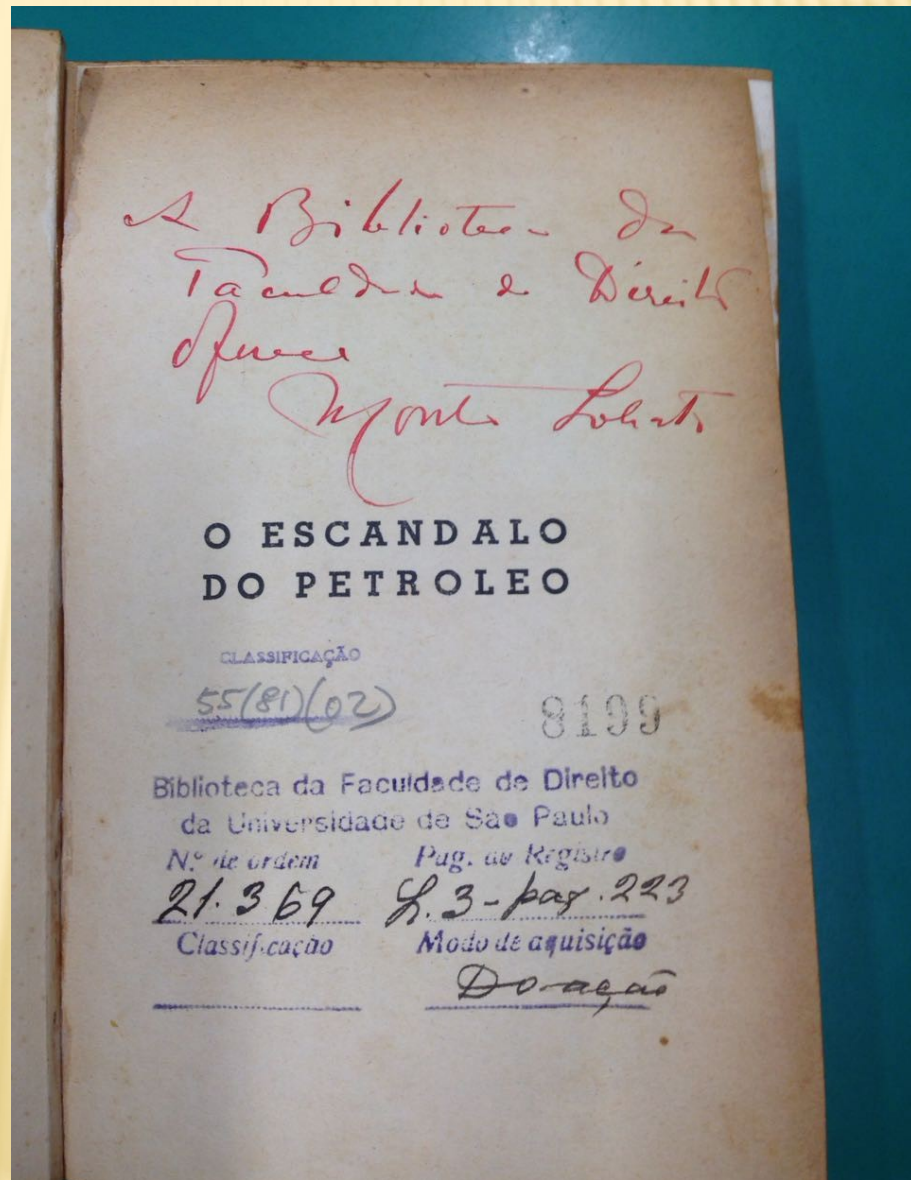 A Biblioteca da
Faculdade de Direito
oferece
Monteiro Lobato
O ESCANDALO
DO PETROLEO
CLASSIFICAÇÃO
55(81)(02)
8199
Biblioteca da Faculdade de Direito
da Universidade de São Paulo
N.º de ordem Pag. do Registro
21.369 L.3-pag.223
Classificação Modo de aquisição
Doação